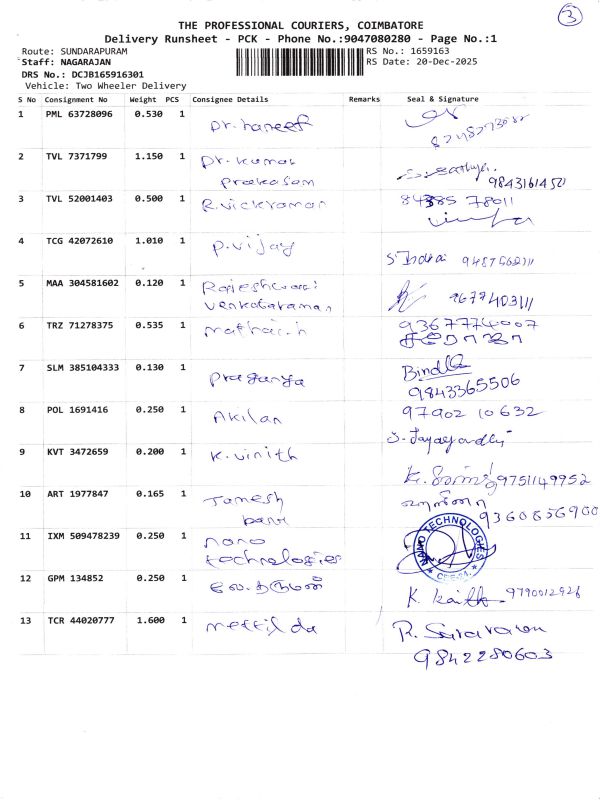 3
THE PROFESSIONAL COURIERS, COIMBATORE
Delivery Runsheet - PCK - Phone No.:9047080280 - Page No.:1
Route: SUNDARAPURAM RS No.: 1659163
Staff: NAGARAJAN RS Date: 20-Dec-2025
DRS No.: DCJB165916301
Vehicle: Two Wheeler Delivery
S No Consignment No Weight PCS Consignee Details Remarks Seal & Signature
1 PML 63728096 0.530 1 Dr. haneef
2 TVL 7371799 1.150 1 Dr. kumar
prakasam 9843161450
3 TVL 52001403 0.500 1 R.vickraman 84385 78011
4 TCG 42072610 1.010 1 P.vijay
5 MAA 304581602 0.120 1 Rajeshwari 9677403111
venkataraman
6 TRZ 71278375 0.535 1 mathai.h 9367774007
7 SLM 385104333 0.130 1 Praganya Bindu
9843365506
8 POL 1691416 0.250 1 Akilan 97902 10632
9 KVT 3472659 0.200 1 K.vinith J. Jayagandhi
9751149952
10 ART 1977847 0.165 1 Jamesh
banu 9360856900
11 IXM 509478239 0.250 1 nano NANO TECHNOLOGIES
technologies CBE-24
12 GPM 134852 0.250 1 K. 9790012926
13 TCR 44020777 1.600 1 mettilda R. Saravanan
9842280603